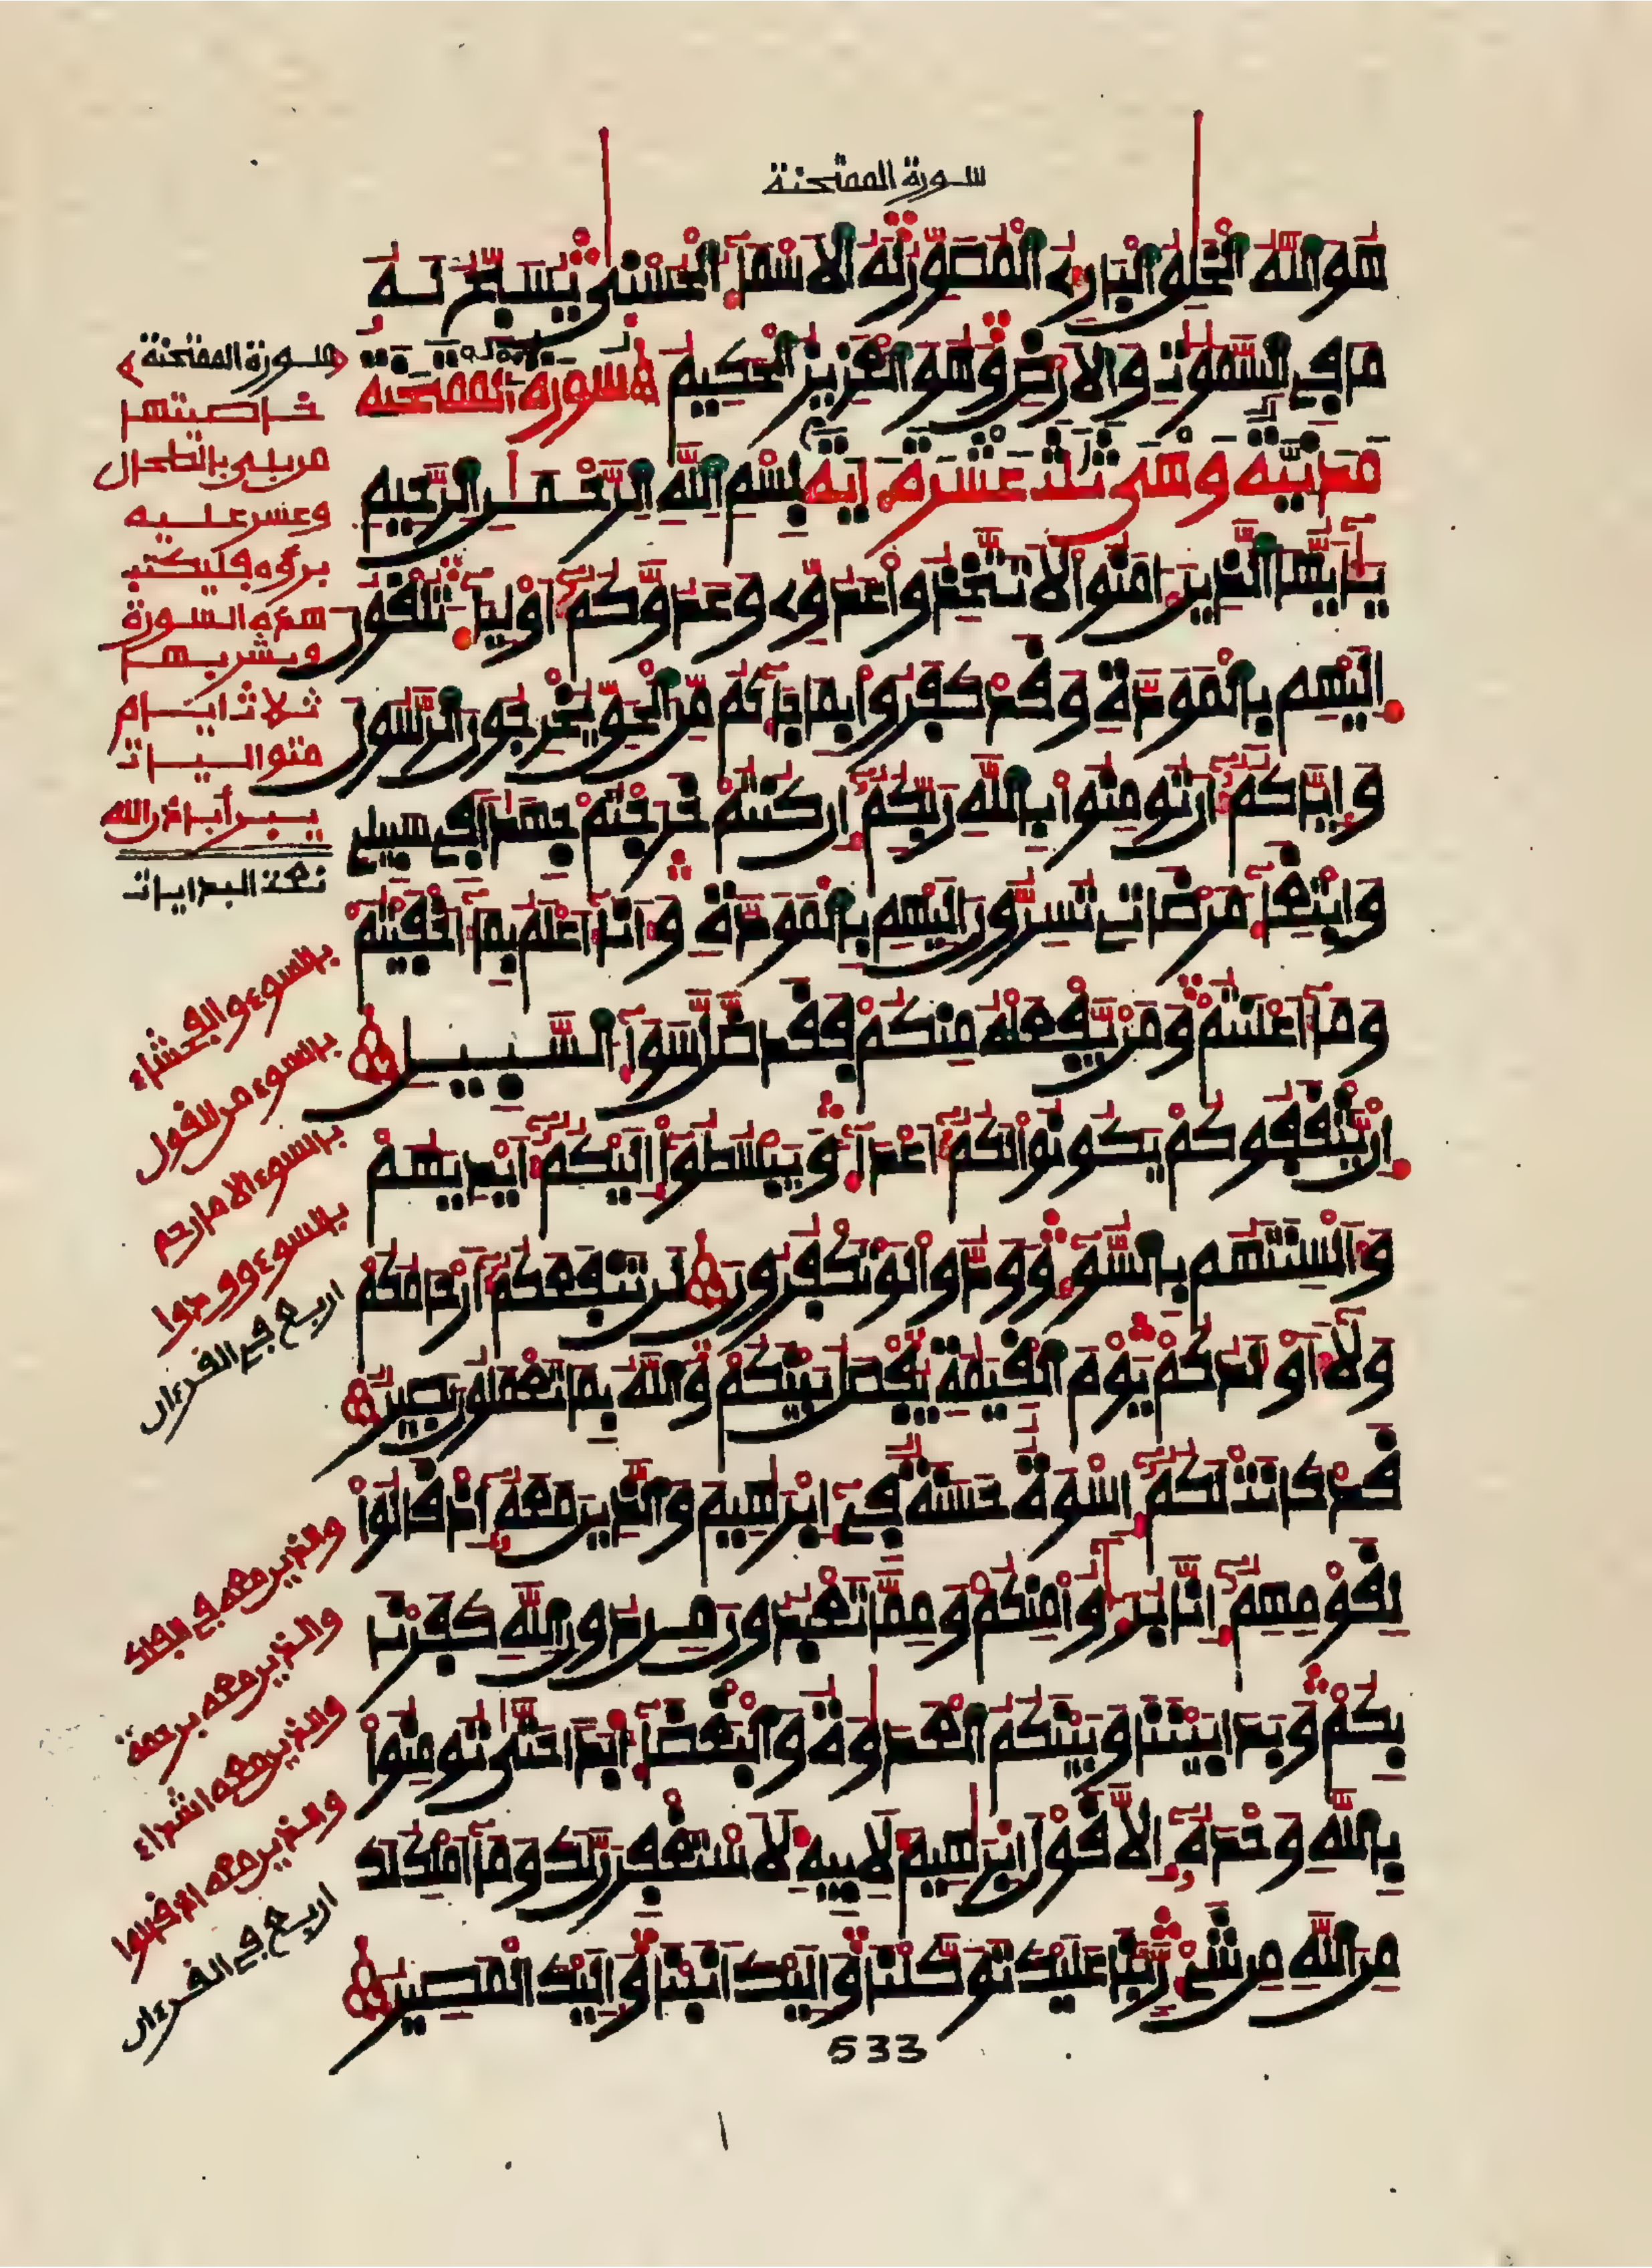 سورة الممتحنة
هو الله الخلق البارئ المصور له الاسماء الحسنى يسبح له
ما في السموت والارض وهو العزيز الحكيم سورة الممتحنة
مدنية وهي ثلث عشرة اية بسم الله الرحمن الرحيم
يايها الذين امنوا لا تتخذوا عدوي وعدوكم اولياء تلقون
اليهم بالمودة وقد كفروا بما جاءكم من الحق يخرجون الرسول
واياكم ان تومنوا بالله ربكم ان كنتم خرجتم جهدا في سبيلي
وابتغاء مرضاتي تسرون اليهم بالمودة وانا اعلم بما اخفيتم
وما اعلنتم ومن يفعله منكم فقد ضل سواء السبيل
ان يثقفوكم يكونوا لكم اعداء ويبسطوا اليكم ايديهم
والسنتهم بالسوء وودوا لو تكفرون لن تنفعكم ارحامكم
ولا اولدكم يوم القيمة يفصل بينكم والله بما تعملون بصير
قد كانت لكم اسوة حسنة في ابرهيم والذين معه اذ قالوا
لقومهم انا برءؤا منكم ومما تعبدون من دون الله كفرنا
بكم وبدا بيننا وبينكم العدوة والبغضاء ابدا حتى تومنوا
بالله وحده الا قول ابرهيم لابيه لاستغفرن لك وما املك لك
من الله من شيء ربنا عليك توكلنا واليك انبنا واليك المصير
533
سورة الممتحنة
خاصيتها
من بلي بالطحال
وعسر عليه
برؤه فليكتب
هذه السورة
ويشربها
ثلاث ايام
متواليات
يبرأ باذن الله
نعت البدايات
بالسوء والفحشاء
بالسوء من القول
بالسوء الا ما رحم
بالسوء وودوا
اربع في القرءان
والذين معه في الفلك
والذين معه برحمة
والذين معه اشداء
والذين معه اذ قالوا
اربع في القرءان